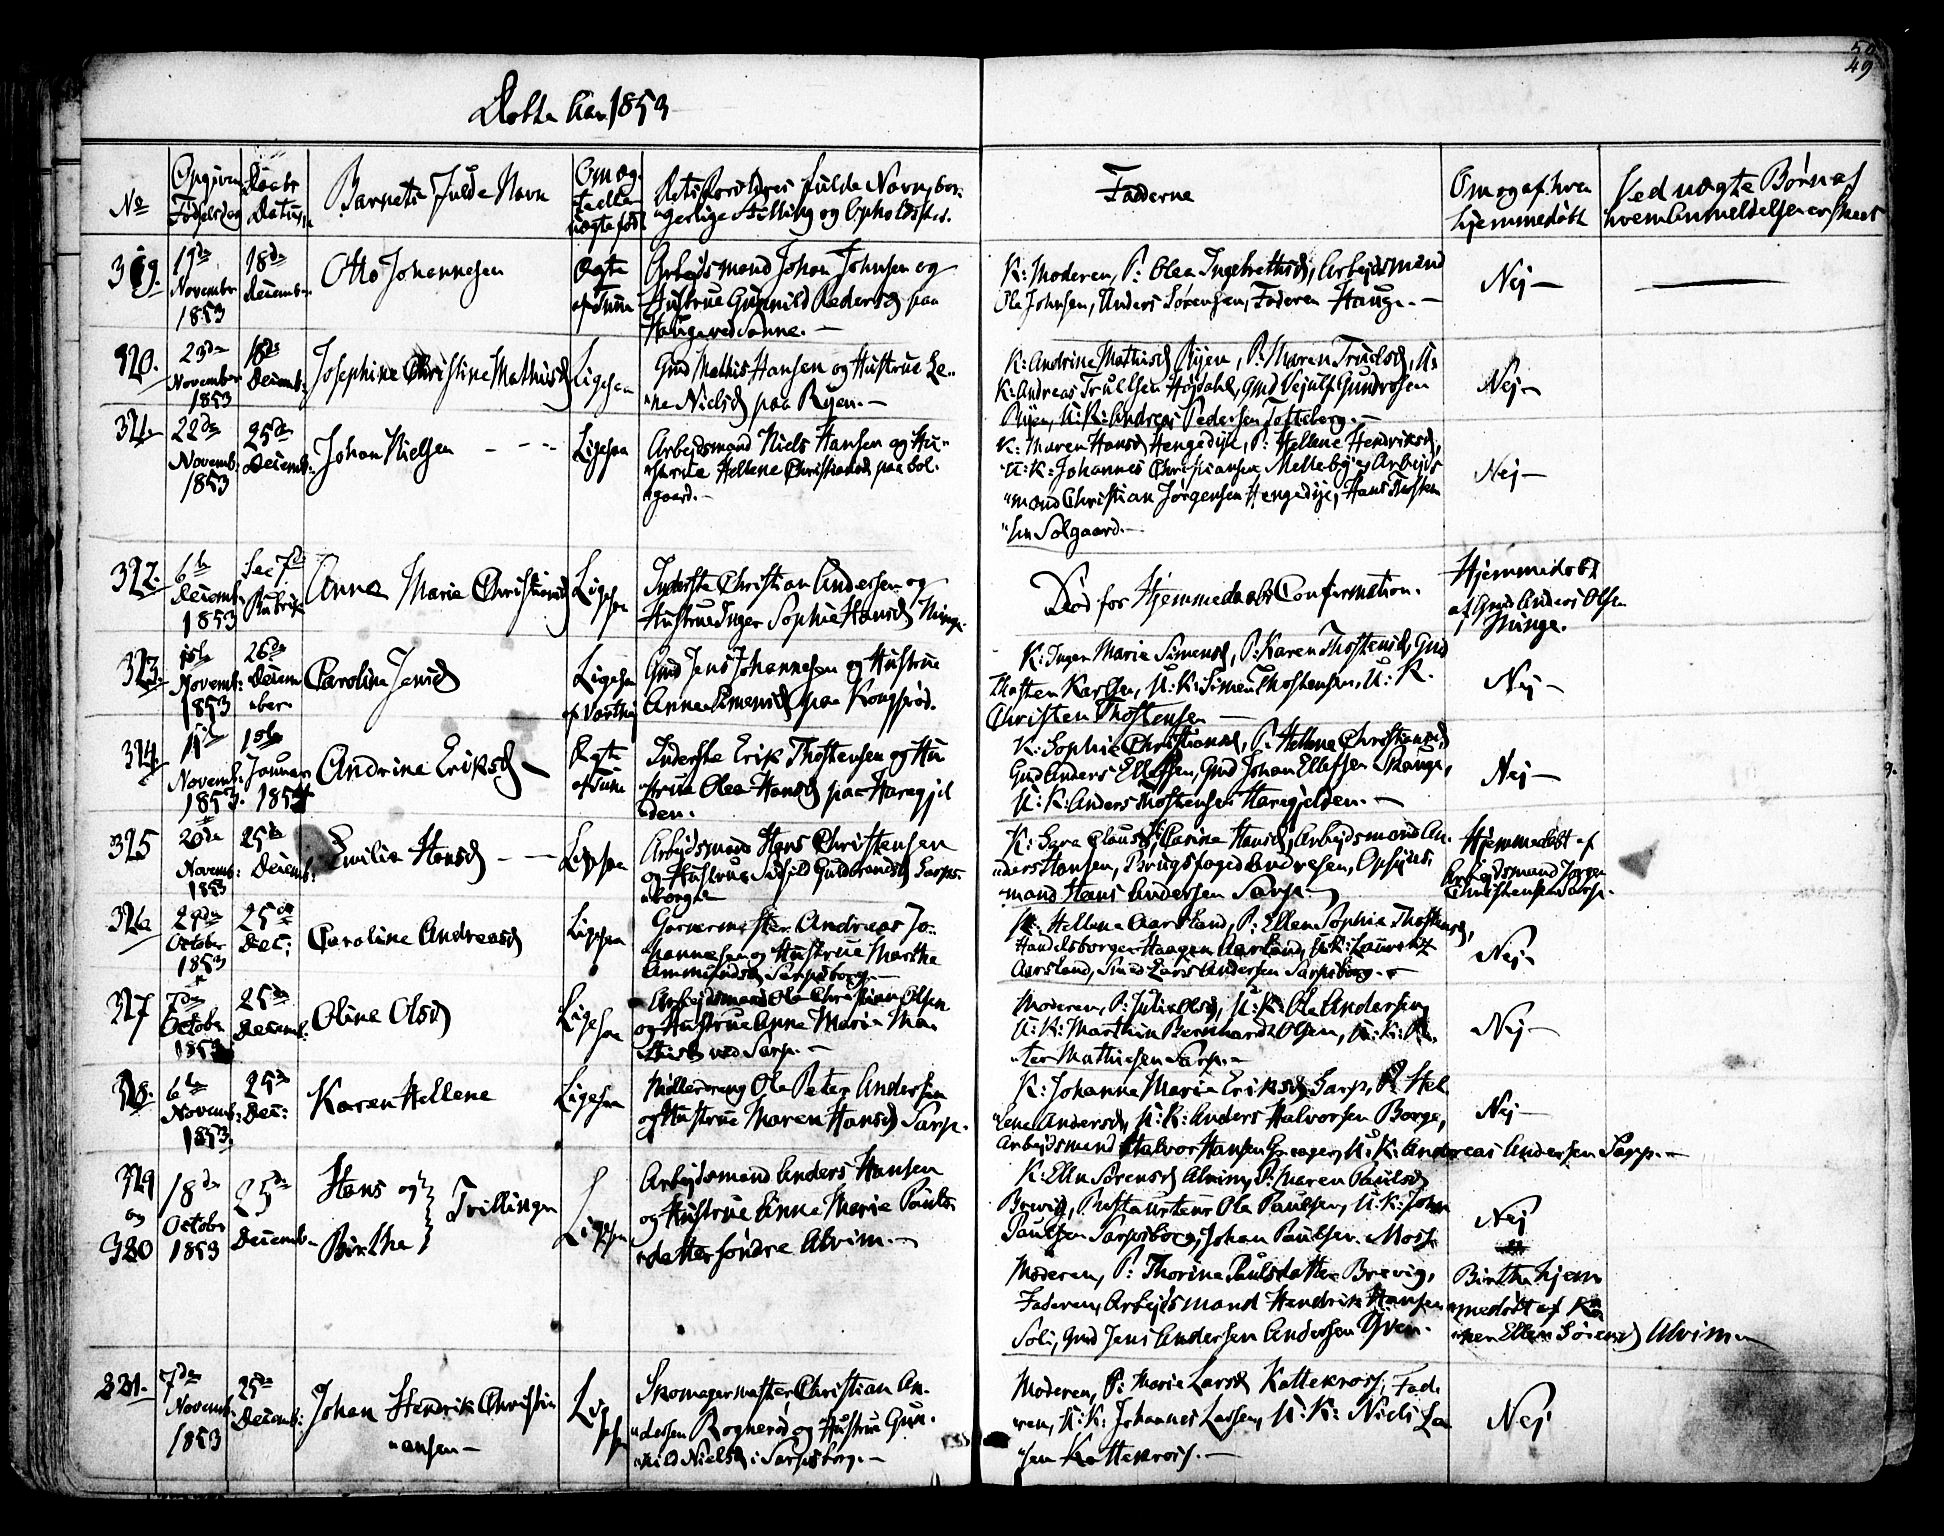 50
49
Døbte Aar 1853
No
Opgiven Fødselsdag
Daabs Datum
Barnets fulde Navn
Om ægte eller uægte født
Rets Forældres fulde Navn, bor-
gerlige Stilling og Opholdssted.
Fadderne
Om og af hvem
hjemmedøbt
Ved uægte Børn af
hvem Anmeldelsen er skeet
319.
19de
Novembr
1853
18de
Decemb:
Otto Johannesen
Ægte
af Tune
Arbejdsmand Johan Johnsen og
Hustrue Gunnild Pedersd paa
Hauge ved Sanne. —
K: Moderen, P: Olea Ingebrethsd, Arbejdsmand
Ole Johnsen, Anders Sørensen, Faderen Hauge. —
Nej —
320.
23de
November
1853
18de
Decemb:
Josephine Christine Mathisd
Ligesaa
Gmd Mathis Hansen og Hustrue Le-
ne Nielsd paa Ryen. —
K: Andrine Mathisd Ryen, P: Maren Truelsd, U:
K: Andreas Truelsen Højdahl, Gmd Vejulf Gundersen
Ryen, U: K: Andreas Pedersen Tofteberg. —
Nej —
321.
22de
Novemb:
1853
25de
Decemb:
Johan Nielsen
Ligesaa
Arbejdsmand Niels Hansen og Hu-
strue Hellene Christiansd paa Sol-
gaard. —
K: Maren Hansd Hengedije, P: Hellene Hendriksd,
U: K: Johannes Christiansen Mellebye, Arbejds
mand Christian Jørgensen Hengedije, Hans Thosten
sen Solgaard. —
Nej —
322.
6te
Decemb:
1853
See 7de
Rubrik
Anne Marie Christiansd
Ligesaa
Inderste Christian Andersen og
Hustrue Inger Sophie Hansd Minge.
Død før Hjemmedaabs Confirmation.
Hjemmedøbt
af Gmd Anders Olsen
Minge.
323.
15de
Novemb:
1853
26de
Decem
ber
Caroline Jensd
Ligesaa
af Varteig
Gmd Jens Johannesen og Hustrue
Anne Simensd paa Kongsrød.
K: Inger Marie Simensd, P: Karen Thostensd, Gmd
Thosten Karlsen, U: K: Simen Thostensen, U: K.
Christen Thostensen —
Nej —
324.
11te
Novemb:
1853.
1ste
Januar
1854
Andrine Eriksd —
Ægte
af Tune
Inderste Erik Thostensen og Hu
strue Olea Hansd paa Haregjel
den.
K: Sophie Christiansd, P: Hellene Christiansd,
Gmd Anders Ellefsen, Gmd Johan Ellefsen Skauge,
U: K: Anders Thostensen Haregjelden. —
Nej —
325
20de
Novemb:
1853
25de
Decemb:
Emilie Hansd
Ligesaa
Arbejdsmand Hans Christensen
og Hustrue Sidsild Guldbrandsd Sarps-
borg
K: Sara Clausd, P: Karine Hansd, Arbejdsmand An-
ders Hansen, Brugsfoged Andresen, Opsyns-
mand Hans Andersen Sarp. —
Hjemmedøbt af
Arbejdsmand Jørgen
Christensen Sarp.
326
29de
October
1853
25de
Dec:
Caroline Andreasd
Ligesaa
Garvermester Andreas Jo-
hannesen og Hustrue Marthe
Ammundsd, Sarpsborg. —
K: Hellene Aarsland, P: Ellen Sophie Thostensd,
Handelsborger Haagen Aarsland, U: K: Lauretz
Aarsland, Smed Lars Andersen Sarpsborg. —
Nej —
327
7de
October
1853
25de
Decemb:
Oline Olsd
Ligesaa
Arbejdsmand Ole Christian Olsen
og Hustrue Anne Marie Ma-
thisd ved Sarp. —
Moderen, P: Julie Olsd, U: K: Ole Andersen,
U: K: Marthin Bernhardt Olsen, U: K: Pe-
ter Mathiesen Sarp. —
Nej —
328.
6te
Novemb:
1853
25de
Dec:
Karen Hellene
Ligesaa
Mølledreng Ole Peter Andersen
og Hustrue Maren Hansd Sarp.
K: Johanne Marie Eriksd Sarp, P: Hel
lene Andersd, U: K: Anders Halvorsen Borge,
Arbejdsmand Halvor Hansen Greager, U: K: Andreas Andersen Sarp. —
Nej —
329
og
330
18de
October
1853
25de
Decemb.
Hans og
Birthe
Tvillinger
Ligesaa
Arbejdsmand Anders Hansen
og Hustrue Anne Marie Pauls-
datter søndre Alvim. —
K: Ellen Sørensd Alvim, P: Maren Paulsd
Brevig, Restaurateur Ole Paulsen, U: K: John
Paulsen Sarpsborg, Johan Paulsen Moss.
Moderen, P: Thorine Paulsdatter Brevig,
Faderen, Arbejdsmand Hendrik Hansen
Soli, Gmd Jens Andersen Andersen Yven.
Nej
Birthe hjem
medøbt af Ko
nen Ellen Sørensd Alvim
331.
7de
Novemb:
1853
25de
Decemb:
Johan Hendrik Christi-
ansen —
Ligesaa
Skomagermester Christian An-
dersen Rognerød og Hustrue Gun-
nild Nielsd i Sarpsborg. —
Moderen, P: Marie Larsd Kattekrose, Fade
ren, U: K: Johannes Larsen, U: K: Niels La
sen Kattekrose. —
Nej